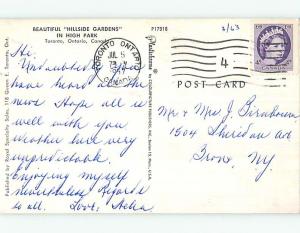 BEAUTIFUL "HILLSIDE GARDENS"
IN HIGH PARK
Toronto, Ontario, Canada
P17918
2/63
TORONTO ONTARIO
JUL 5
CANADA
4
POST CARD
Hi,
Undoubtedly you
have heard all the
news Hope all is
well with you
Weather here very
unpredictable.
Enjoying myself
nevertheless. Regards
to all. Love,
Mr & Mrs J. Birnbaum
1504 Sheridan Ave
Bronx, NY
Published by Royal Specialty Sales, 118 Queen E. Toronto, Ont.